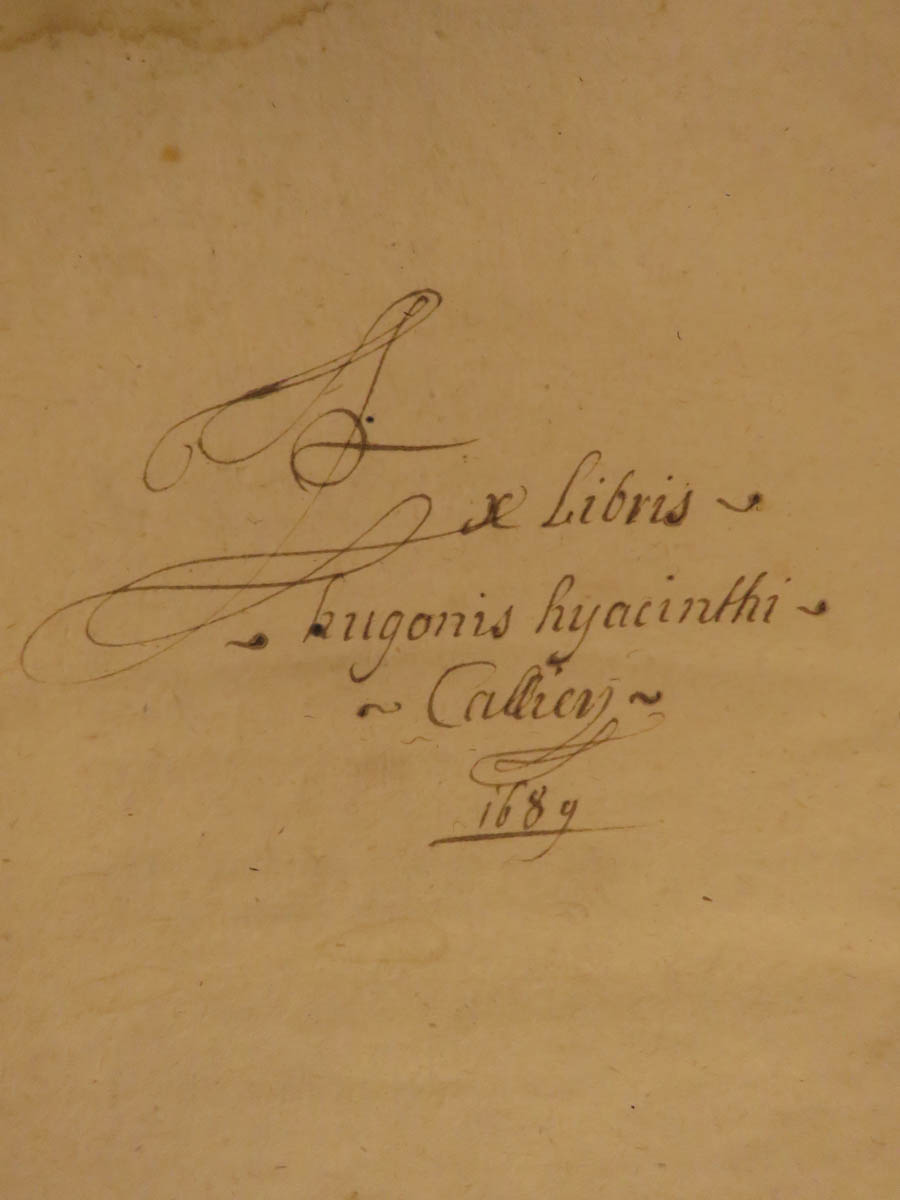 Ex Libris ~
~ hugonis hyacinthi ~
~ Calliery ~
1689